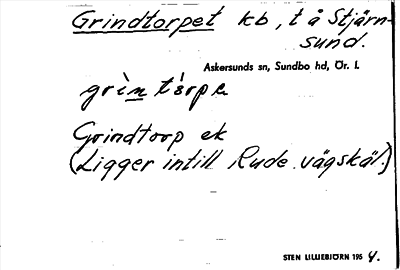 Grindtorpet kb, t å Stjärn-
sund.
Askersunds sn, Sundbo hd, Ör. l.
grìn tårpe
Grindtorp ek
(Ligger intill Rude vägskäl.)
STEN LILLIEBJÖRN 1954.